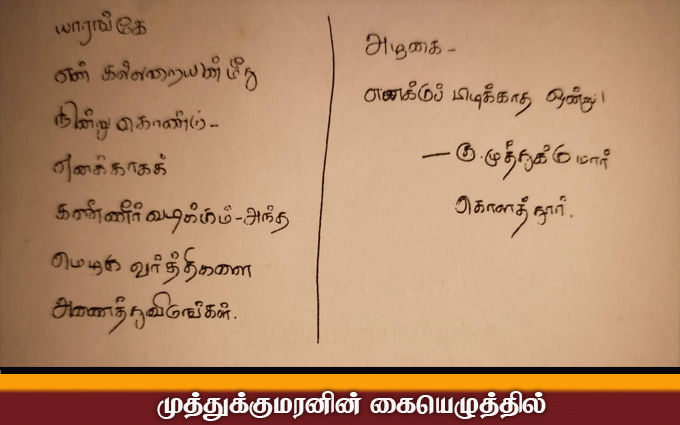 யாரங்கே
என் கல்லறையின் மீது
நின்று கொண்டு -
எனக்காகக்
கண்ணீர் வடிக்கும் - அந்த
மெழுகு வர்த்திகளை
அணைத்துவிடுங்கள்.
அழுகை -
எனக்குப் பிடிக்காத ஒன்று!
— கு. முத்துக்குமார்
கொளத்தூர்.
முத்துக்குமரனின் கையெழுத்தில்